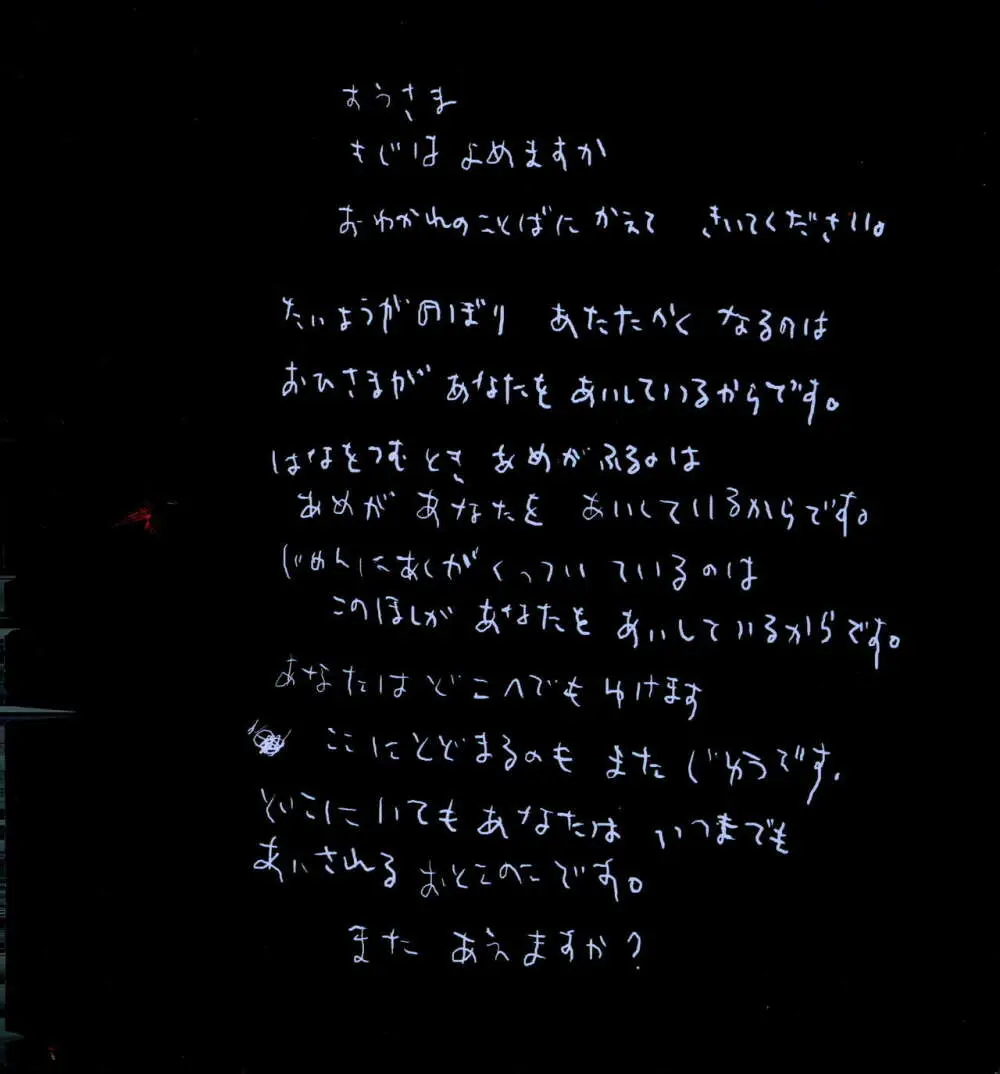 おうさま
もじは よめますか
おわかれのことばに かえて きいてください。
たいようがのぼり あたたかく なるのは
おひさまが あなたを あいしているからです。
はなをつむとき あめがふるのは
あめが あなたを あいしているからです。
じめんにあしがくっついているのは
このほしが あなたを あいしているからです。
あなたは どこへでも ゆけます
ここにとどまるのも また じゆうです.
どこにいても あなたは いつまでも
あいされる おとこのこです。
また あえますか?